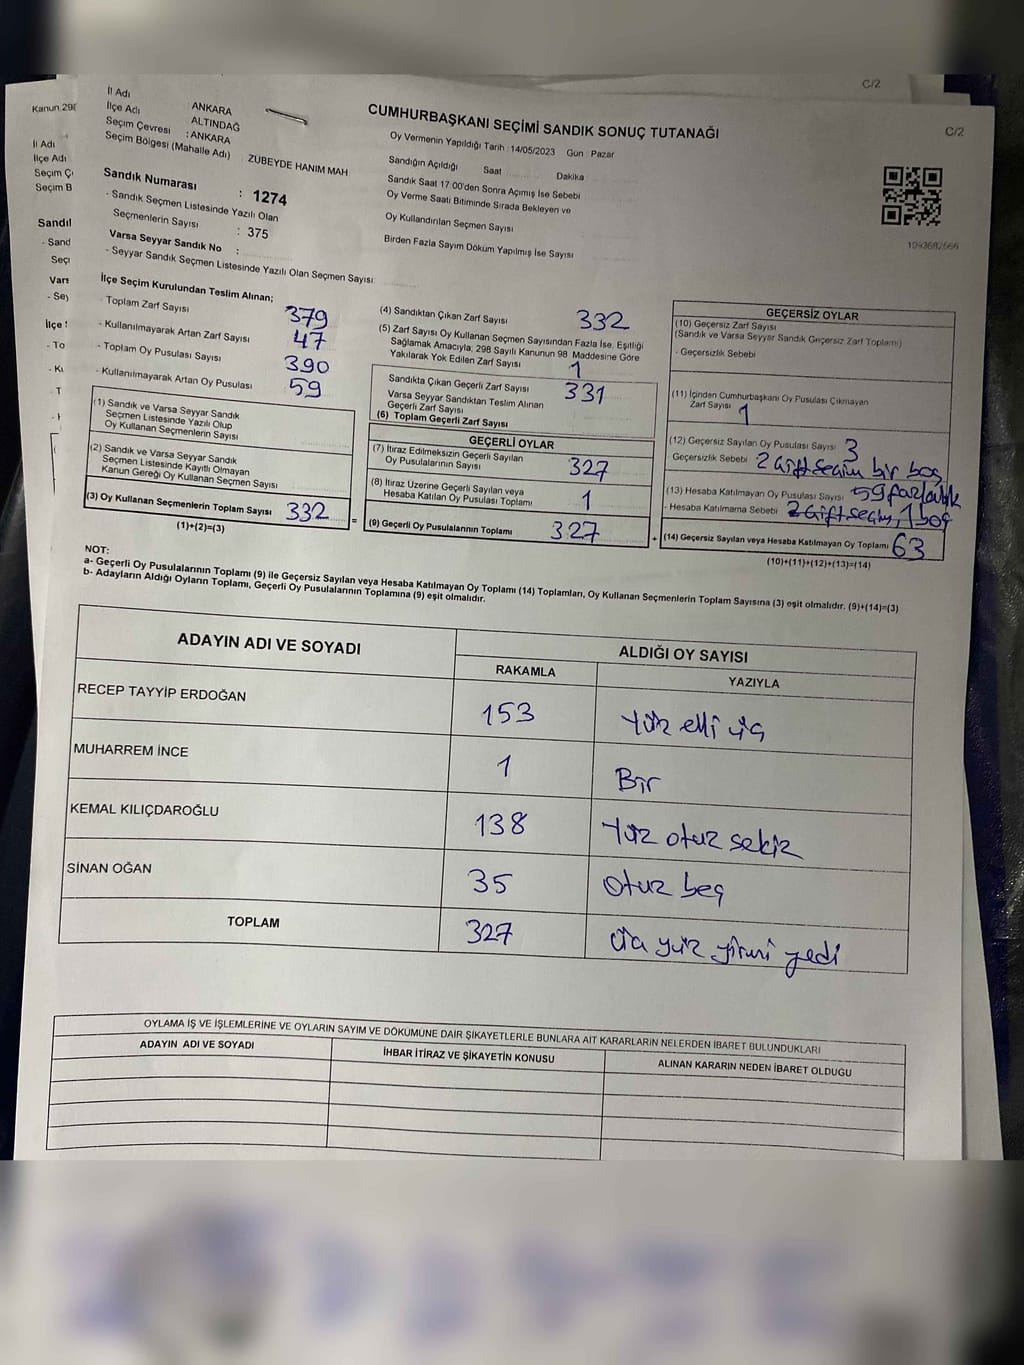 C/2
Kanun 298
İl Adı
İlçe Adı
Seçim Ç
Seçim B
Sandıl
- Sand
Seçi
Vars
- Sey
İlçe S
- To
- Kı
- To
İl Adı ANKARA
İlçe Adı ALTINDAĞ
Seçim Çevresi : ANKARA
Seçim Bölgesi (Mahalle Adı) ZÜBEYDE HANIM MAH
Sandık Numarası : 1274
- Sandık Seçmen Listesinde Yazılı Olan
Seçmenlerin Sayısı : 375
Varsa Seyyar Sandık No :
- Seyyar Sandık Seçmen Listesinde Yazılı Olan Seçmen Sayısı
CUMHURBAŞKANI SEÇİMİ SANDIK SONUÇ TUTANAĞI
C/2
Oy Vermenin Yapıldığı Tarih : 14/05/2023 Gün : Pazar
Sandığın Açıldığı Saat Dakika
Sandık Saat 17:00'den Sonra Açımış İse Sebebi
Oy Verme Saati Bitiminde Sırada Bekleyen ve
Oy Kullandırılan Seçmen Sayısı
Birden Fazla Sayım Döküm Yapılmış İse Sayısı
1093682566
İlçe Seçim Kurulundan Teslim Alınan;
- Toplam Zarf Sayısı 379
- Kullanılmayarak Artan Zarf Sayısı 47
- Toplam Oy Pusulası Sayısı 390
- Kullanılmayarak Artan Oy Pusulası 59
(1) Sandık ve Varsa Seyyar Sandık
Seçmen Listesinde Yazılı Olup
Oy Kullanan Seçmenlerin Sayısı
(2) Sandık ve Varsa Seyyar Sandık
Seçmen Listesinde Kayıtlı Olmayan
Kanun Gereği Oy Kullanan Seçmen Sayısı
(3) Oy Kullanan Seçmenlerin Toplam Sayısı 332
(1)+(2)=(3)
(4) Sandıktan Çıkan Zarf Sayısı 332
(5) Zarf Sayısı Oy Kullanan Seçmen Sayısından Fazla İse, Eşitliği
Sağlamak Amacıyla; 298 Sayılı Kanunun 98. Maddesine Göre
Yakılarak Yok Edilen Zarf Sayısı 1
Sandıkta Çıkan Geçerli Zarf Sayısı 331
Varsa Seyyar Sandıktan Teslim Alınan
Geçerli Zarf Sayısı
(6) Toplam Geçerli Zarf Sayısı
GEÇERLİ OYLAR
(7) İtiraz Edilmeksizin Geçerli Sayılan
Oy Pusulalarının Sayısı 327
(8) İtiraz Üzerine Geçerli Sayılan veya
Hesaba Katılan Oy Pusulası Toplamı 1
= (9) Geçerli Oy Pusulalarının Toplamı 327
GEÇERSİZ OYLAR
(10) Geçersiz Zarf Sayısı
(Sandık ve Varsa Seyyar Sandık Geçersiz Zarf Toplamı)
- Geçersizlik Sebebi
(11) İçinden Cumhurbaşkanı Oy Pusulası Çıkmayan
Zarf Sayısı 1
(12) Geçersiz Sayılan Oy Pusulası Sayısı 3
Geçersizlik Sebebi 2 Çift seçim bir boş
(13) Hesaba Katılmayan Oy Pusulası Sayısı 59 fazlalık
- Hesaba Katılmama Sebebi 2 Çift seçim, 1 boş
+ (14) Geçersiz Sayılan veya Hesaba Katılmayan Oy Toplamı 63
(10)+(11)+(12)+(13)=(14)
NOT:
a- Geçerli Oy Pusulalarının Toplamı (9) ile Geçersiz Sayılan veya Hesaba Katılmayan Oy Toplamı (14) Toplamları, Oy Kullanan Seçmenlerin Toplam Sayısına (3) eşit olmalıdır. (9)+(14)=(3)
b- Adayların Aldığı Oyların Toplamı, Geçerli Oy Pusulalarının Toplamına (9) eşit olmalıdır.
ADAYIN ADI VE SOYADI ALDIĞI OY SAYISI
RAKAMLA YAZIYLA
RECEP TAYYİP ERDOĞAN 153 Yüz elli üç
MUHARREM İNCE 1 Bir
KEMAL KILIÇDAROĞLU 138 Yüz otuz sekiz
SİNAN OĞAN 35 Otuz beş
TOPLAM 327 Üç yüz yirmi yedi
OYLAMA İŞ VE İŞLEMLERİNE VE OYLARIN SAYIM VE DÖKÜMÜNE DAİR ŞİKAYETLERLE BUNLARA AİT KARARLARIN NELERDEN İBARET BULUNDUKLARI
ADAYIN ADI VE SOYADI İHBAR İTİRAZ VE ŞİKAYETİN KONUSU ALINAN KARARIN NEDEN İBARET OLDUĞU